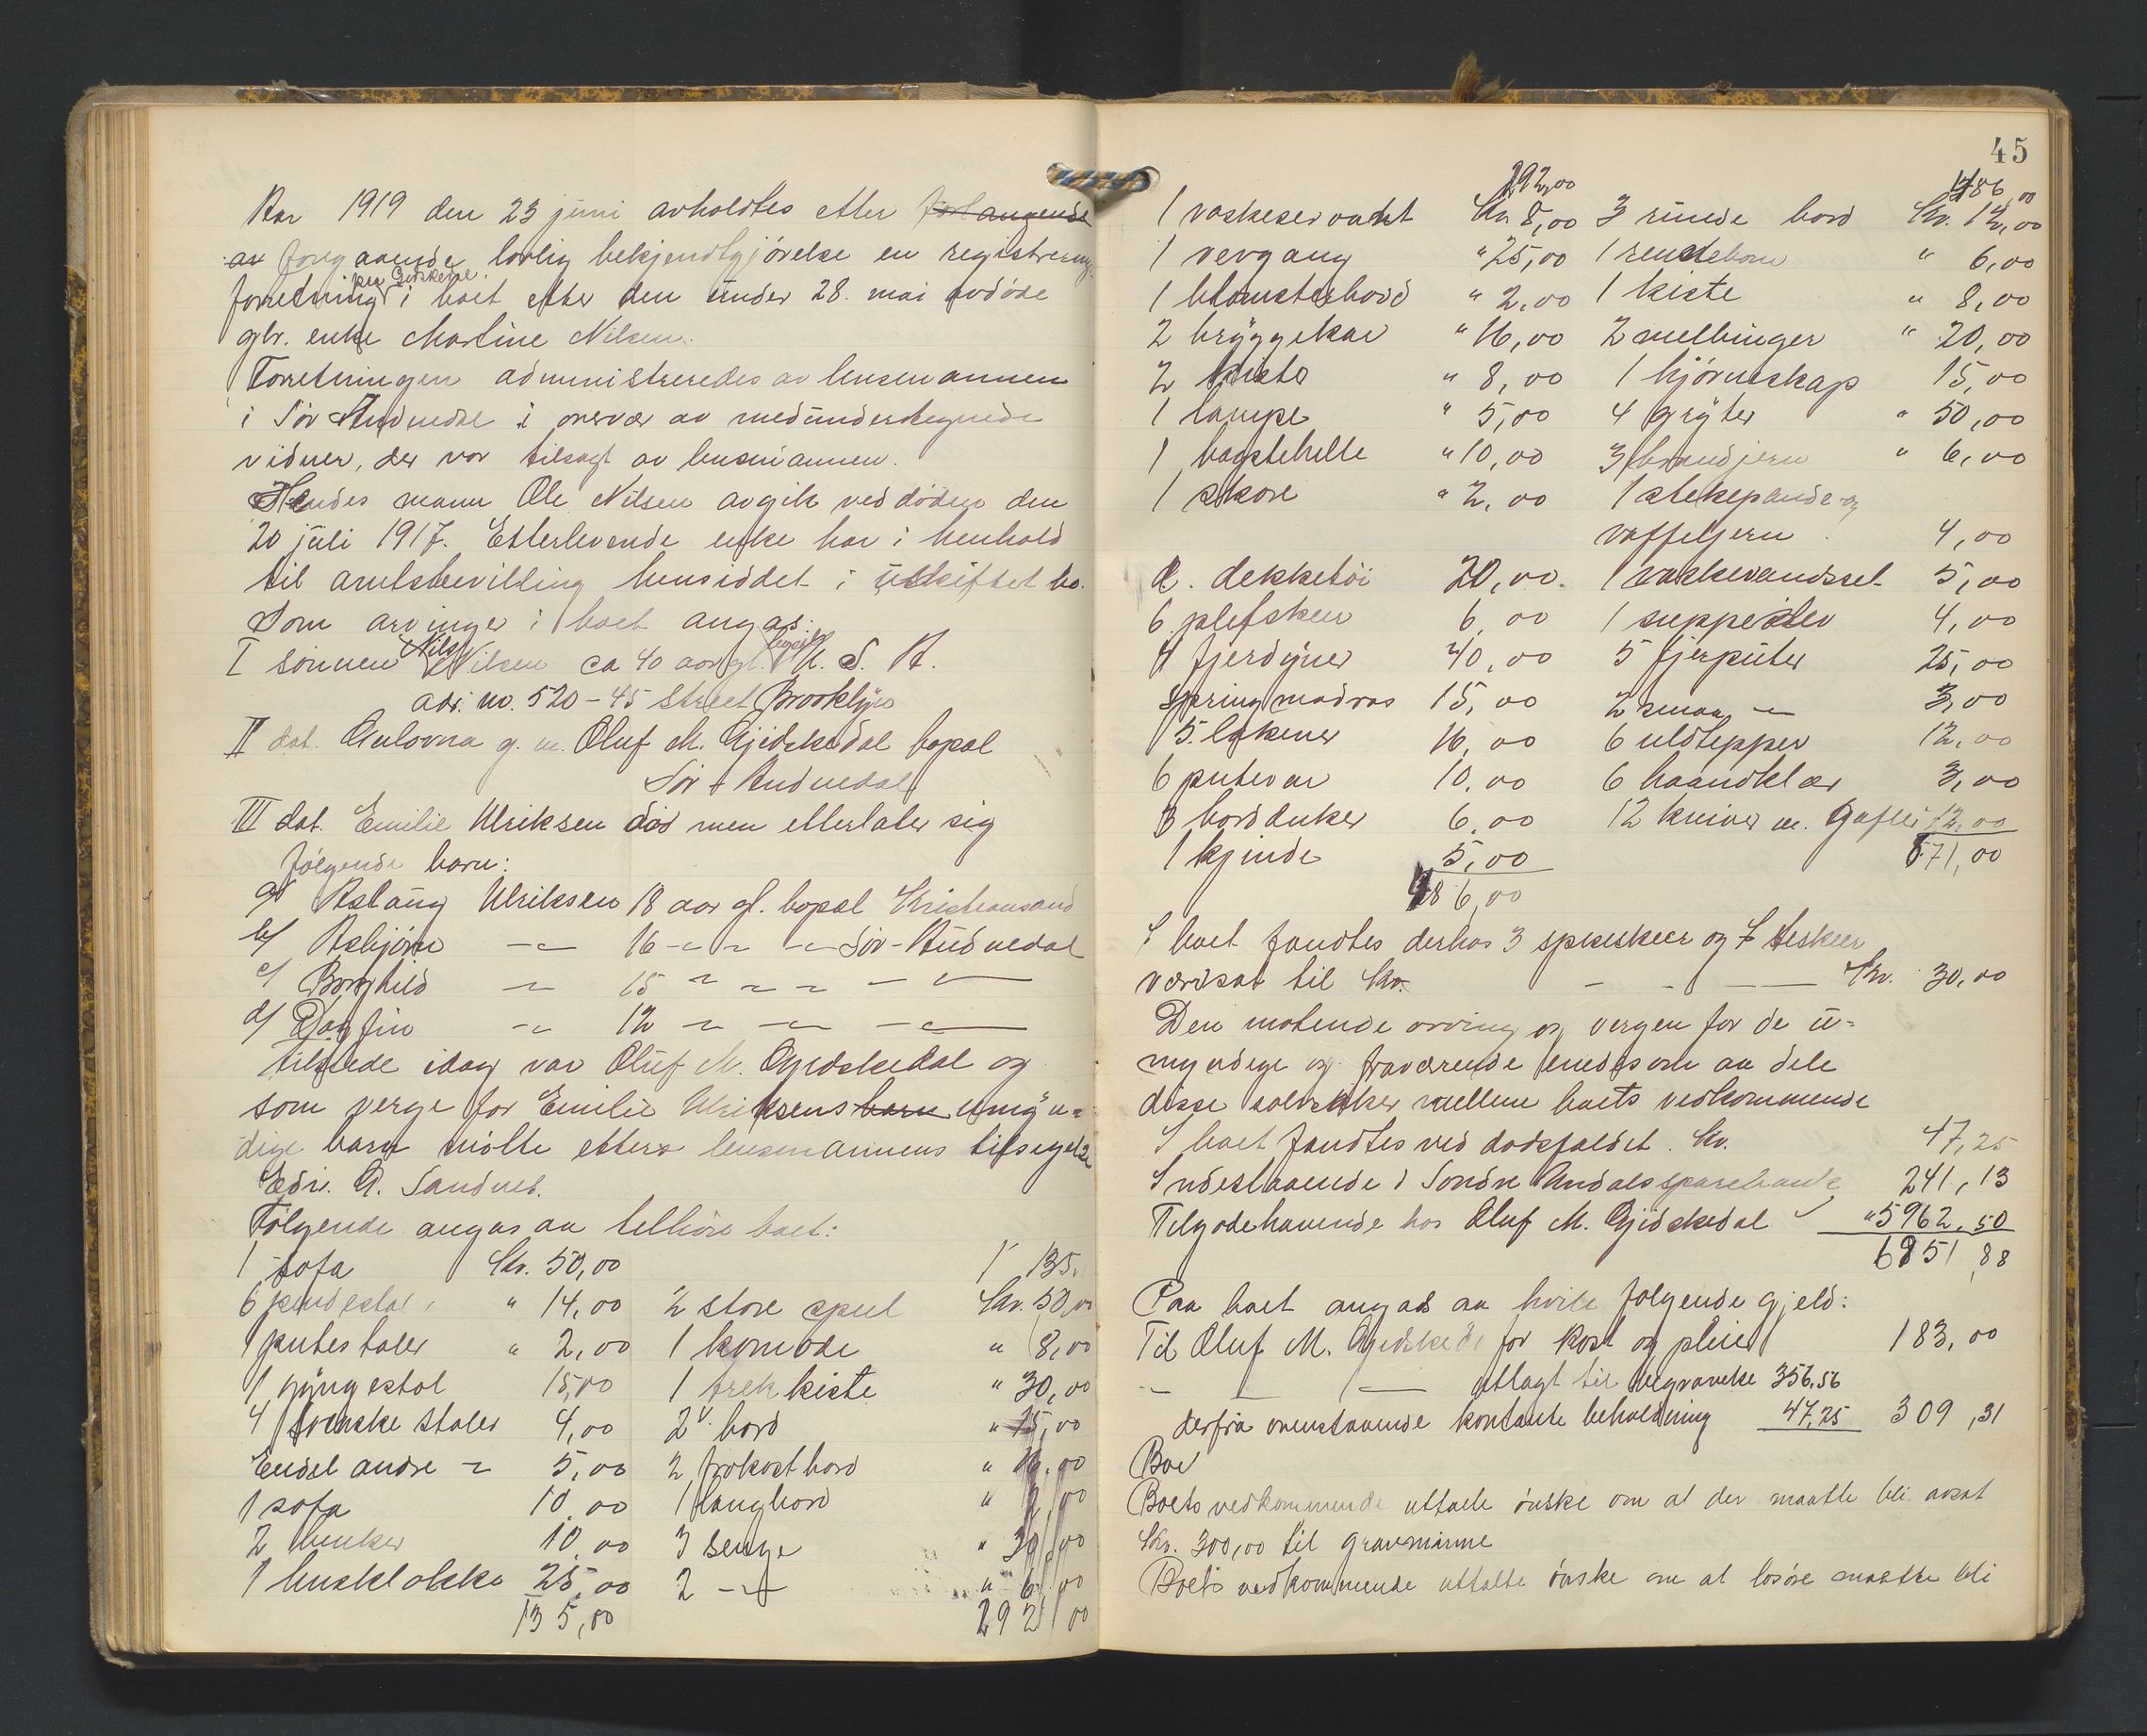 Aar 1919 den 23 juni avholdtes etter forlangende
av forgaaende lovlig bekjendtgjörelse en registrerings
forretning paa Gidskedal i boet efter den under 28. mai avdöde
gbr. enke Martine Nilsen.
Forretningen administreredes av lensmannen
i Sör Audnedal i overvær av medundertegnede
vidner, der var tilsagt av lensmannen.
Hendes mann Ole Nilsen avgik ved döden den
20 juli 1917. Efterlevende enke har i henhold
til amtsbevilling hensiddet i uskiftet bo.
Som arvinger i boet angas:
I sönnen Nils Nilsen ca 40 aar gl. bopæl U. S. A.
adr. no. 520 - 45 Street Brooklyn
II dat. Gulovna g. m. Oluf M. Gjidskedal bopæl
Sör-Audnedal
III dat. Emilie Ulriksen död men etterlater sig
fölgende barn:
a/ Aslaug Ulriksen 18 aar gl. bopæl Kristiansand
b/ Asbjörn -"- 16 -"- " -"- Sör-Audnedal
c/ Borghild -"- 15 " " " - " -
d/ Dagfin -"- 12 " -"- -"-
Tilstede idag var Oluf M. Gjidskedal og
som verge for Emilie Ulriksens barn umyn-
dige barn mötte etter lensmannens tilsigelse
Edv. G. Sandnes.
Fölgende angas aa tilhöre boet:
1 sofa Kr. 50,00 135.
6 pindestol " 14,00 2 store speil Kr. 50,00
1 putestoler " 2,00 1 komode " 8,00
1 gyngestol 15,00 1 trekkiste " 30,00
4 svenske stoler 4,00 2 bord " 15,00
Endel andre " 5,00 2 frokostbord " 16,00
1 sofa 10,00 1 langbord " 2,00
2 benker 10,00 3 senge " 30,00
1 husklokke 25,00 2 -"- " 6,00
135,00 292,00
45
292,00 486,00
1 vaskeservant Kr. 8,00 3 runde bord Kr. 12,00
1 vevgang " 25,00 1 rendebom " 6,00
1 blomsterbord " 2,00 1 kiste " 8,00
2 bryggekar " 16,00 2 melbinger " 20,00
2 kister " 8,00 1 hjörneskap 15,00
1 lampe " 5,00 4 gryter " 50,00
1 bagstehelle " 10,00 3 brandjern " 6,00
1 skore " 2,00 1 stekepande og
vaffeljern 4,00
d. dekketöi 20,00. 1 vaskevandsset 5,00
6 pletskeer 6,00 1 suppeslev 4,00
4 fjerdyner 40,00 5 fjerputer 25,00
spring madras 15,00 2 smaa -"- 3,00
5 lakener 16,00 6 uldtepper 12,00
6 putevar 10,00 6 haandklær 3,00
3 bordduker 6,00 12 kniver m. gafler 12,00
1 kjinde 5,00 671,00
486,00
I boet fandtes derhos 3 spiseskeer og 7 teskeer
værdsat til Kr. - - - Kr. 30,00
Den mötende arving og vergen for de u-
myndige og fraværende enedes om aa dele
disse sölvsaker mellem boets vedkommende
I boet fandtes ved dödsfaldet. Kr. 47,25
Indestaaende i Söndre Undals sparebank 241,13
Tilgodehavende hos Oluf M. Gjidskedal " 5962,50
6951,88
Paa boet angaas aa hvile fölgende gjeld:
Til Oluf M. Gjidskedal for kost og pleie 183,00
-"- -"- utlagt til begravelse 356,56
derfra ovenstaaende kontante beholdning 47,25 309,31
Boe
Boets vedkommende uttalte önske om at der maatte bli avsat
Kr. 300,00 til gravminne
Boets vedkommende uttalte önske om at lösöre maatte bli